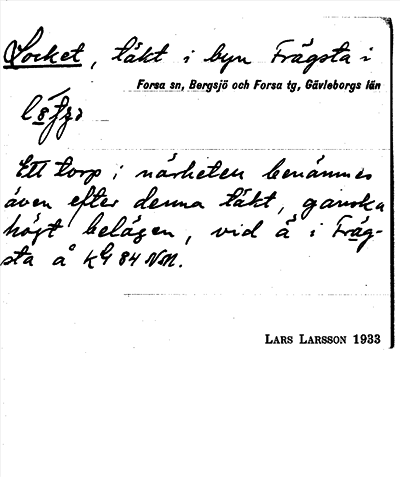 Locket, täkt i byn Frägsta i
Forsa sn, Bergsjö och Forsa tg, Gävleborgs län
Ett torp i närheten benämnes
även efter denna täkt, ganska
högt belägen, vid å i Fräg-
sta å kG 84 NM.
LARS LARSSON 1933